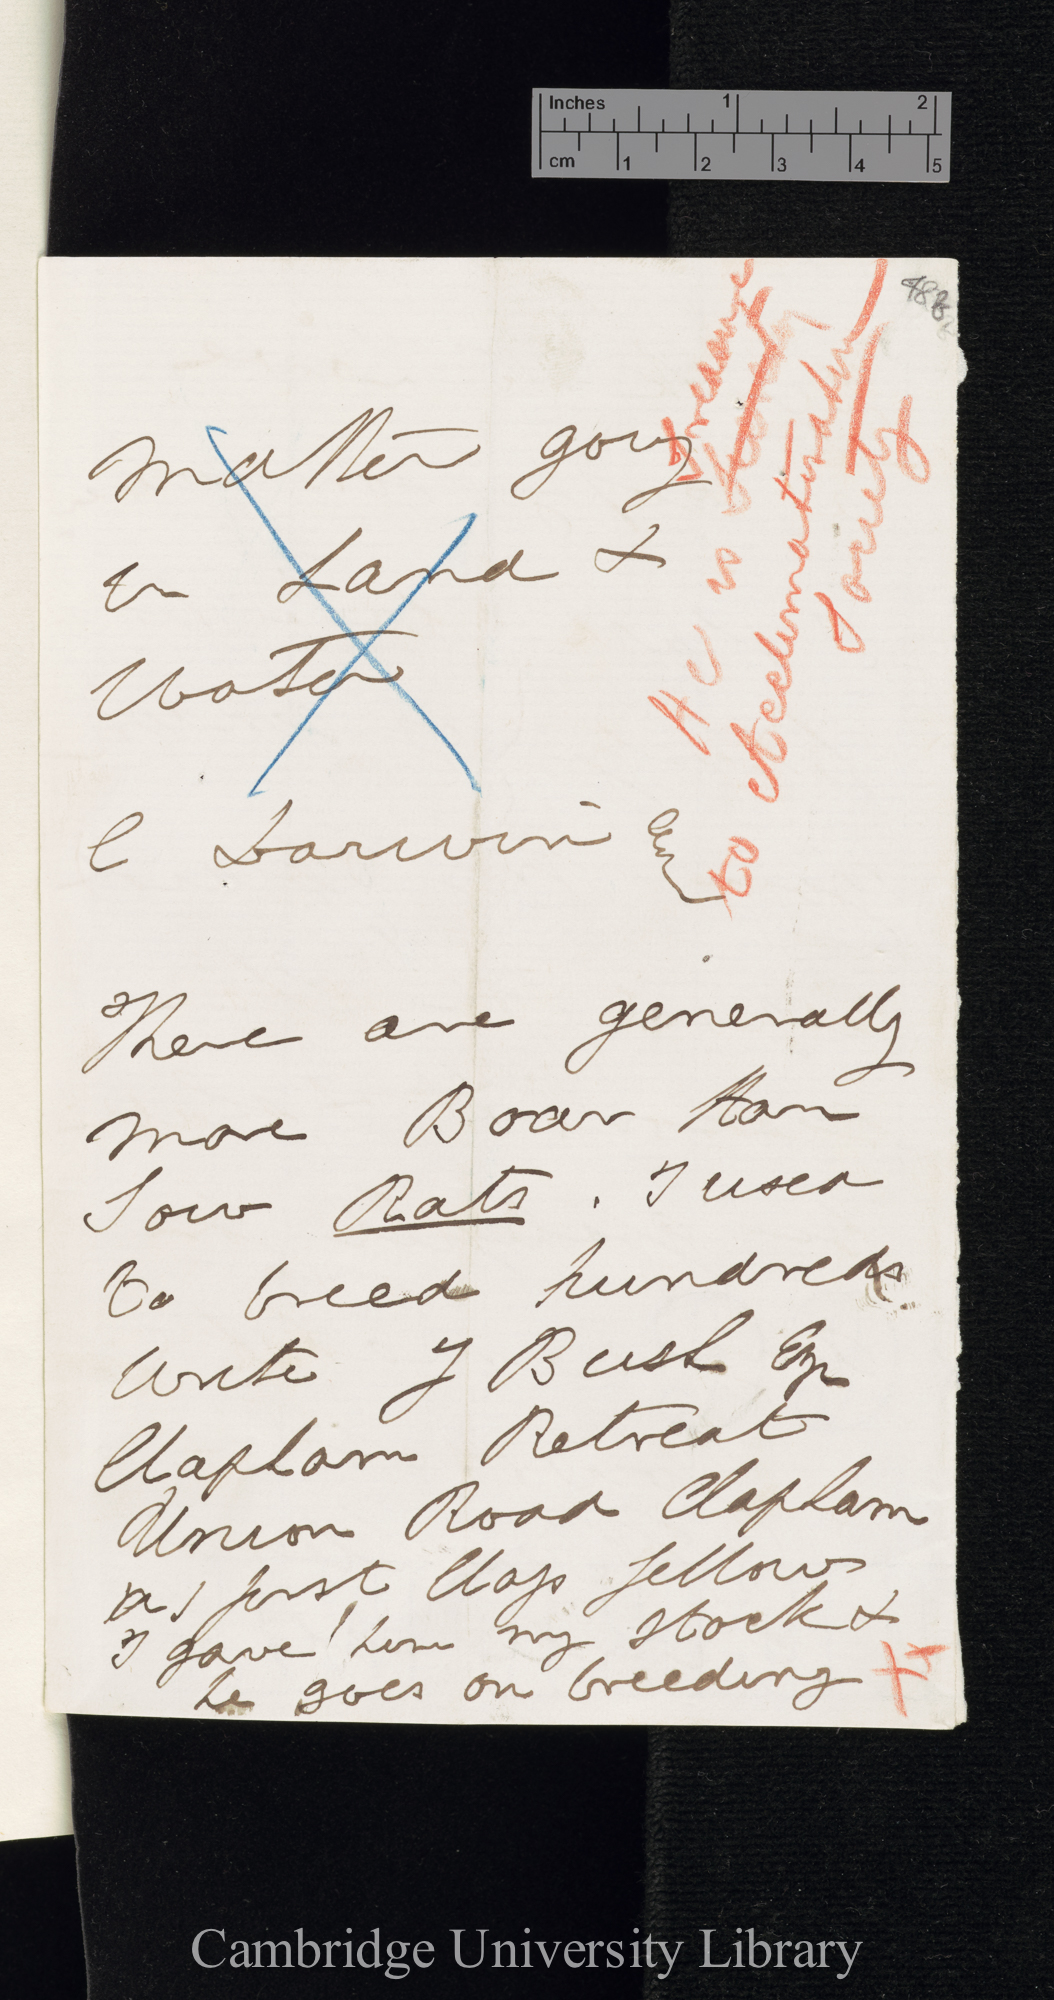 Inches 1 2
cm 1 2 3 4 5
48b
matter going
in Land &
Water
C Darwin Esq
There are generally
more Boar than
Sow Rats . I used
to breed hundreds
write J Bush Esq
Clapham Retreat
Union Road Clapham
a 1 first Class fellow
I gave him my stock &
he goes on breeding
He is
Treasurer
to Acclimatisation
Society
Cambridge University Library